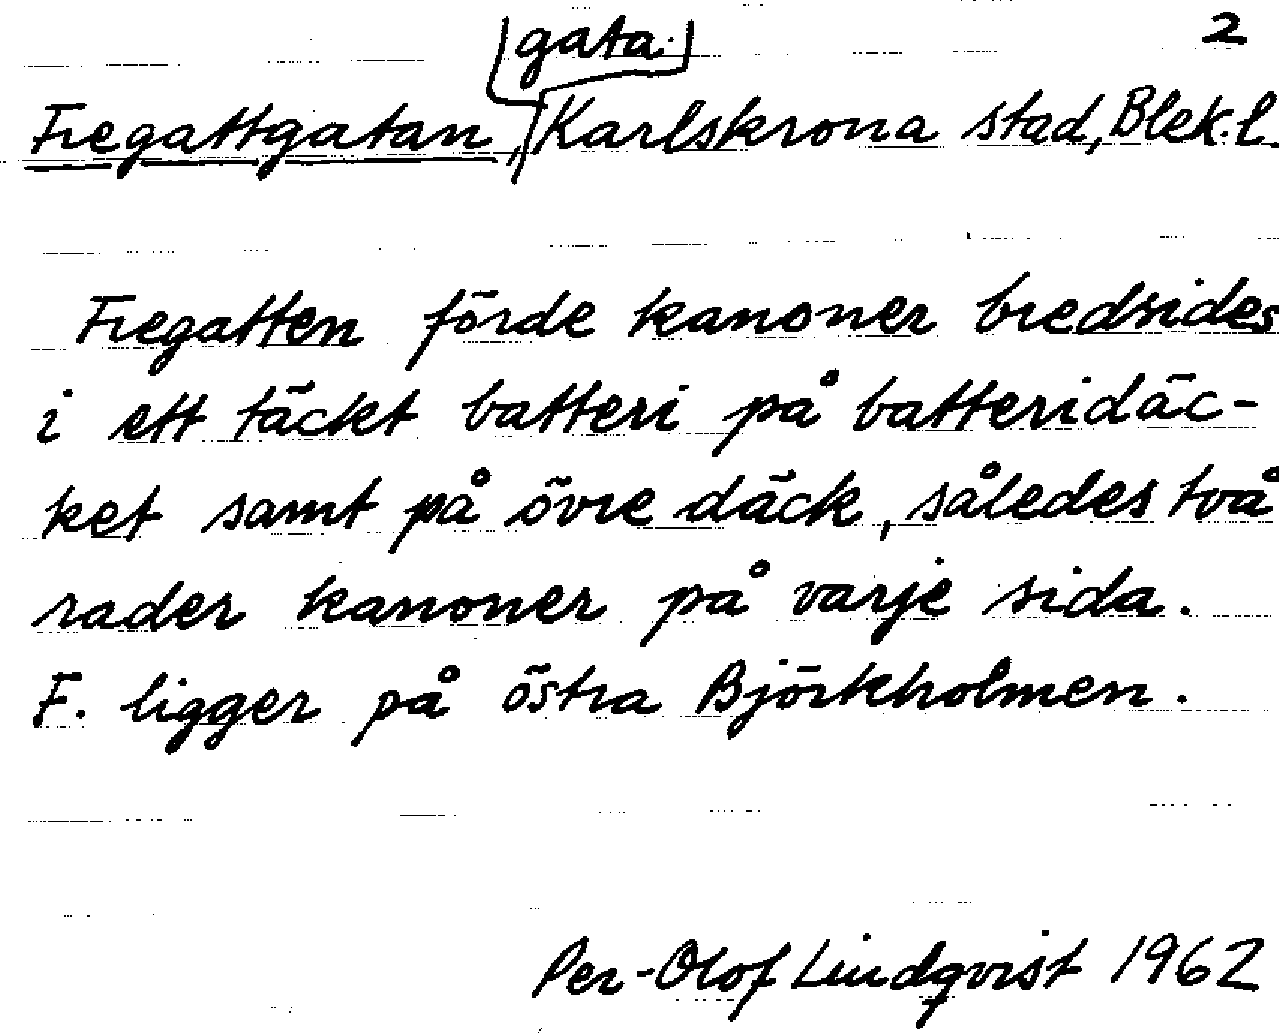 2
gata.
Fregattgatan, Karlskrona stad, Blek. l.
Fregatten förde kanoner bredsides
i ett täckt batteri på batteridäc-
ket samt på övre däck, således två
rader kanoner på varje sida.
F. ligger på östra Björkholmen.
Per-Olof Lindqvist 1962